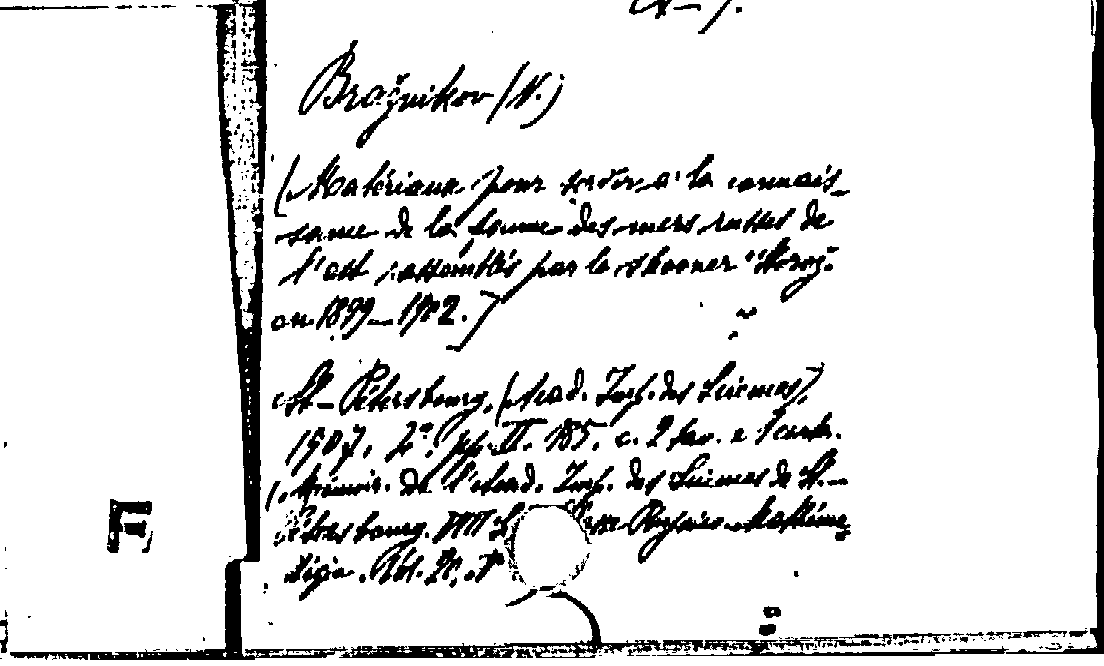 Bražnikov (N.)
(Matériaux pour servir a la connais_
sance de la faune des mers russes de
l'est rassemblés par le schooner "Storož"
en 1899_1902.)
St_Pétersbourg, (Acad. Imp. des Sciences),
1907, pp. II. 185, c. 2 tav. e 1 carta.
(Mémoir. de l'Acad. Imp. des Sciences de St._
Pétersbourg. VIII Physico-Mathéma_
Vol. 20,
E